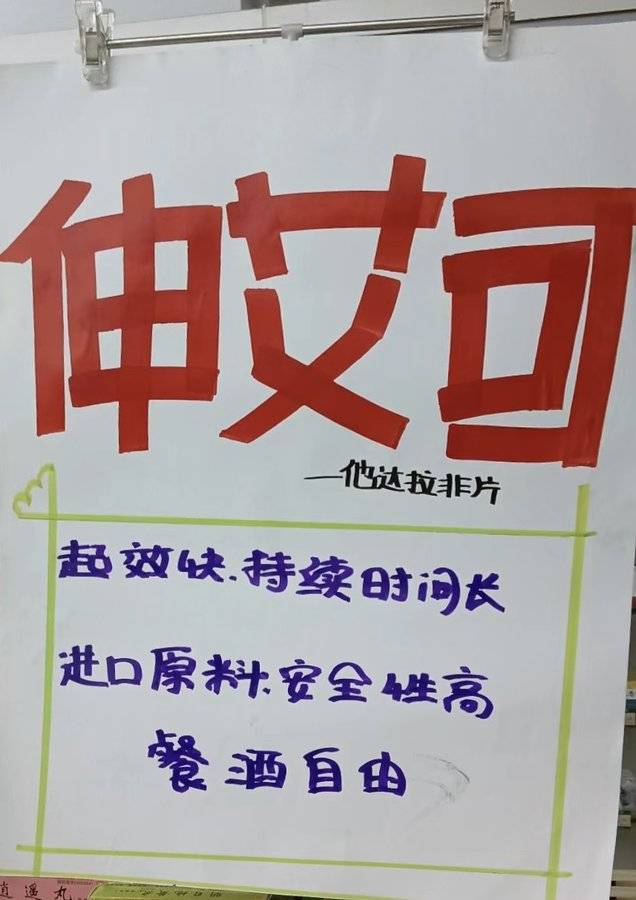 伸艾可
—他达拉非片
起效快.持续时间长
进口原料.安全性高
餐酒自由
逍遥丸